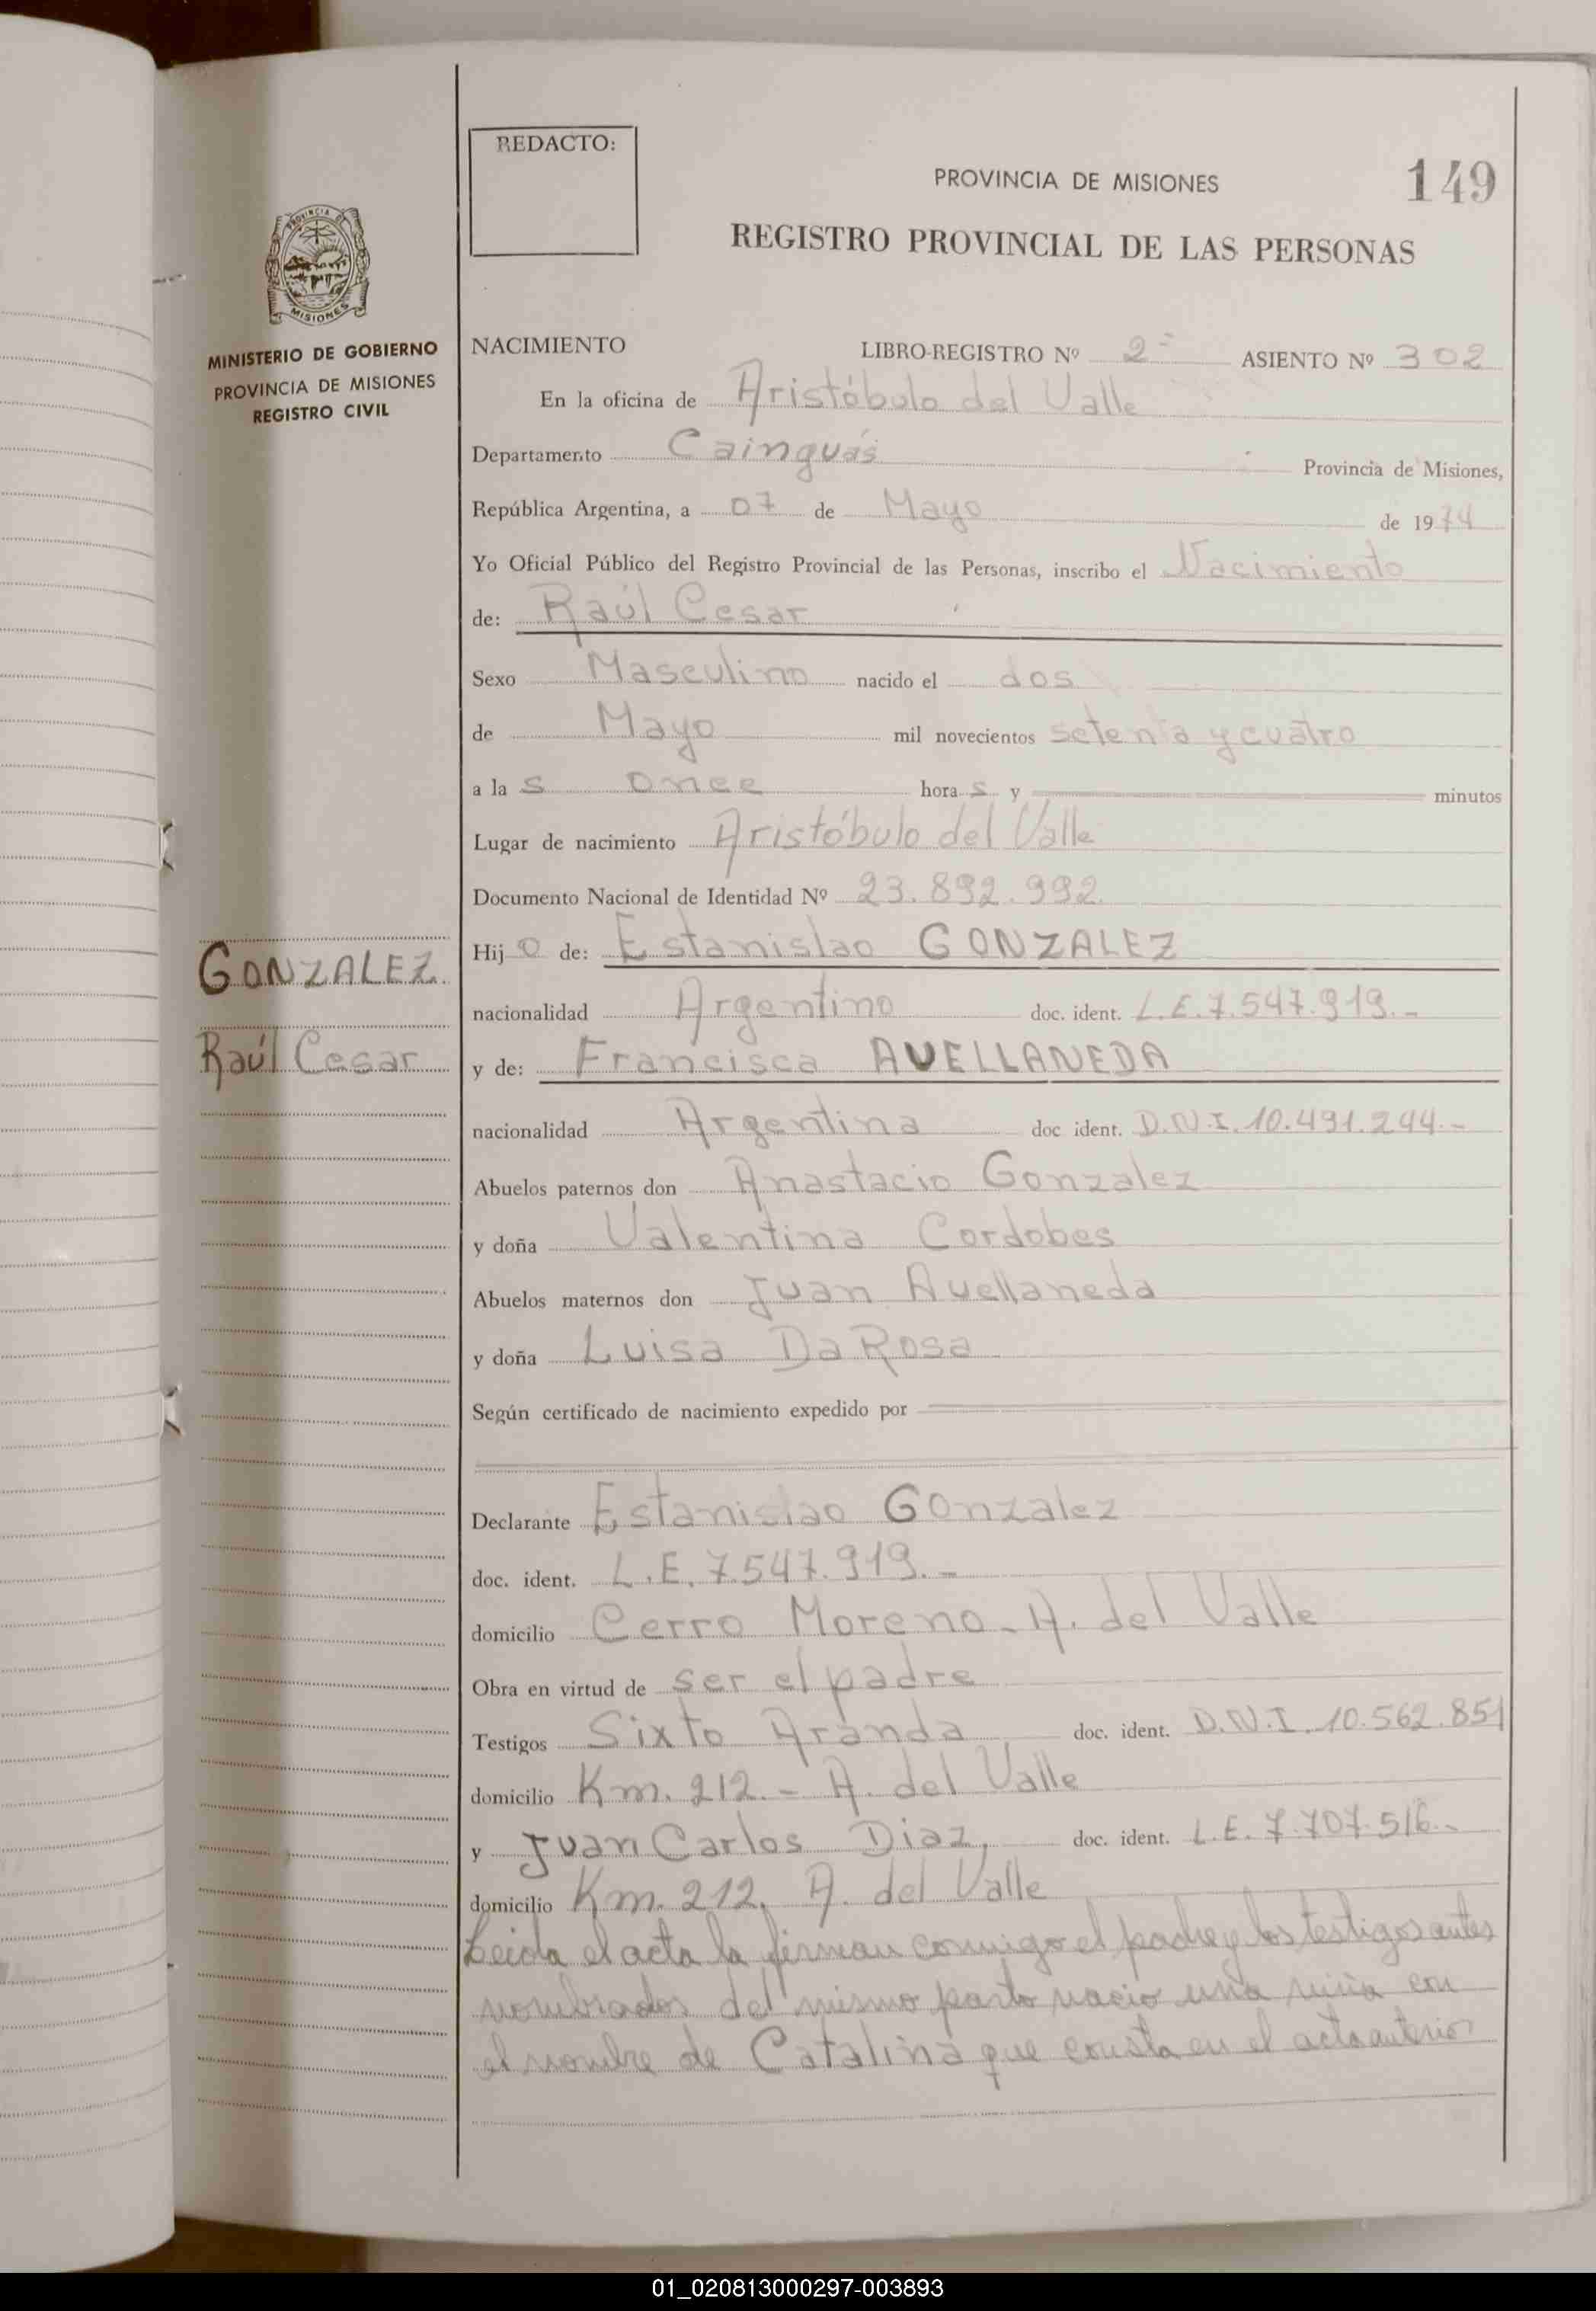 REDACTO:
149
PROVINCIA DE MISIONES
REGISTRO PROVINCIAL DE LAS PERSONAS
PROVINCIA DE
MISIONES
MINISTERIO DE GOBIERNO
PROVINCIA DE MISIONES
REGISTRO CIVIL
NACIMIENTO LIBRO-REGISTRO Nº 2º ASIENTO Nº 302
En la oficina de Aristóbulo del Valle
Departamento Cainguás Provincia de Misiones,
República Argentina, a 07 de Mayo de 1974
Yo Oficial Público del Registro Provincial de las Personas, inscribo el Nacimiento
de: Raúl Cesar
Sexo Masculino nacido el dos
de Mayo mil novecientos setenta y cuatro
a las once horas y minutos
Lugar de nacimiento Aristóbulo del Valle
Documento Nacional de Identidad Nº 23.892.992
Hijo de: Estanislao GONZALEZ
GONZALEZ
nacionalidad Argentino doc. ident. L.E. 7.547.919.-
Raúl Cesar
y de: Francisca AVELLANEDA
nacionalidad Argentina doc ident. D.N.I. 10.491.244.-
Abuelos paternos don Anastacio Gonzalez
y doña Valentina Cordobes
Abuelos maternos don Juan Avellaneda
y doña Luisa Da Rosa
Según certificado de nacimiento expedido por
Declarante Estanislao Gonzalez
doc. ident. L.E. 7.547.919.-
domicilio Cerro Moreno - A. del Valle
Obra en virtud de ser el padre
Testigos Sixto Aranda doc. ident. D.N.I. 10.562.851
domicilio Km. 212.- A. del Valle
y Juan Carlos Diaz, doc. ident. L.E. 7.707.516.-
domicilio Km. 212, A. del Valle
Leida el acta la firman conmigo el padre y los testigos antes
nombrados del mismo parto nacio una niña con
el nombre de Catalina que consta en el acta anterior
01_020813000297-003893